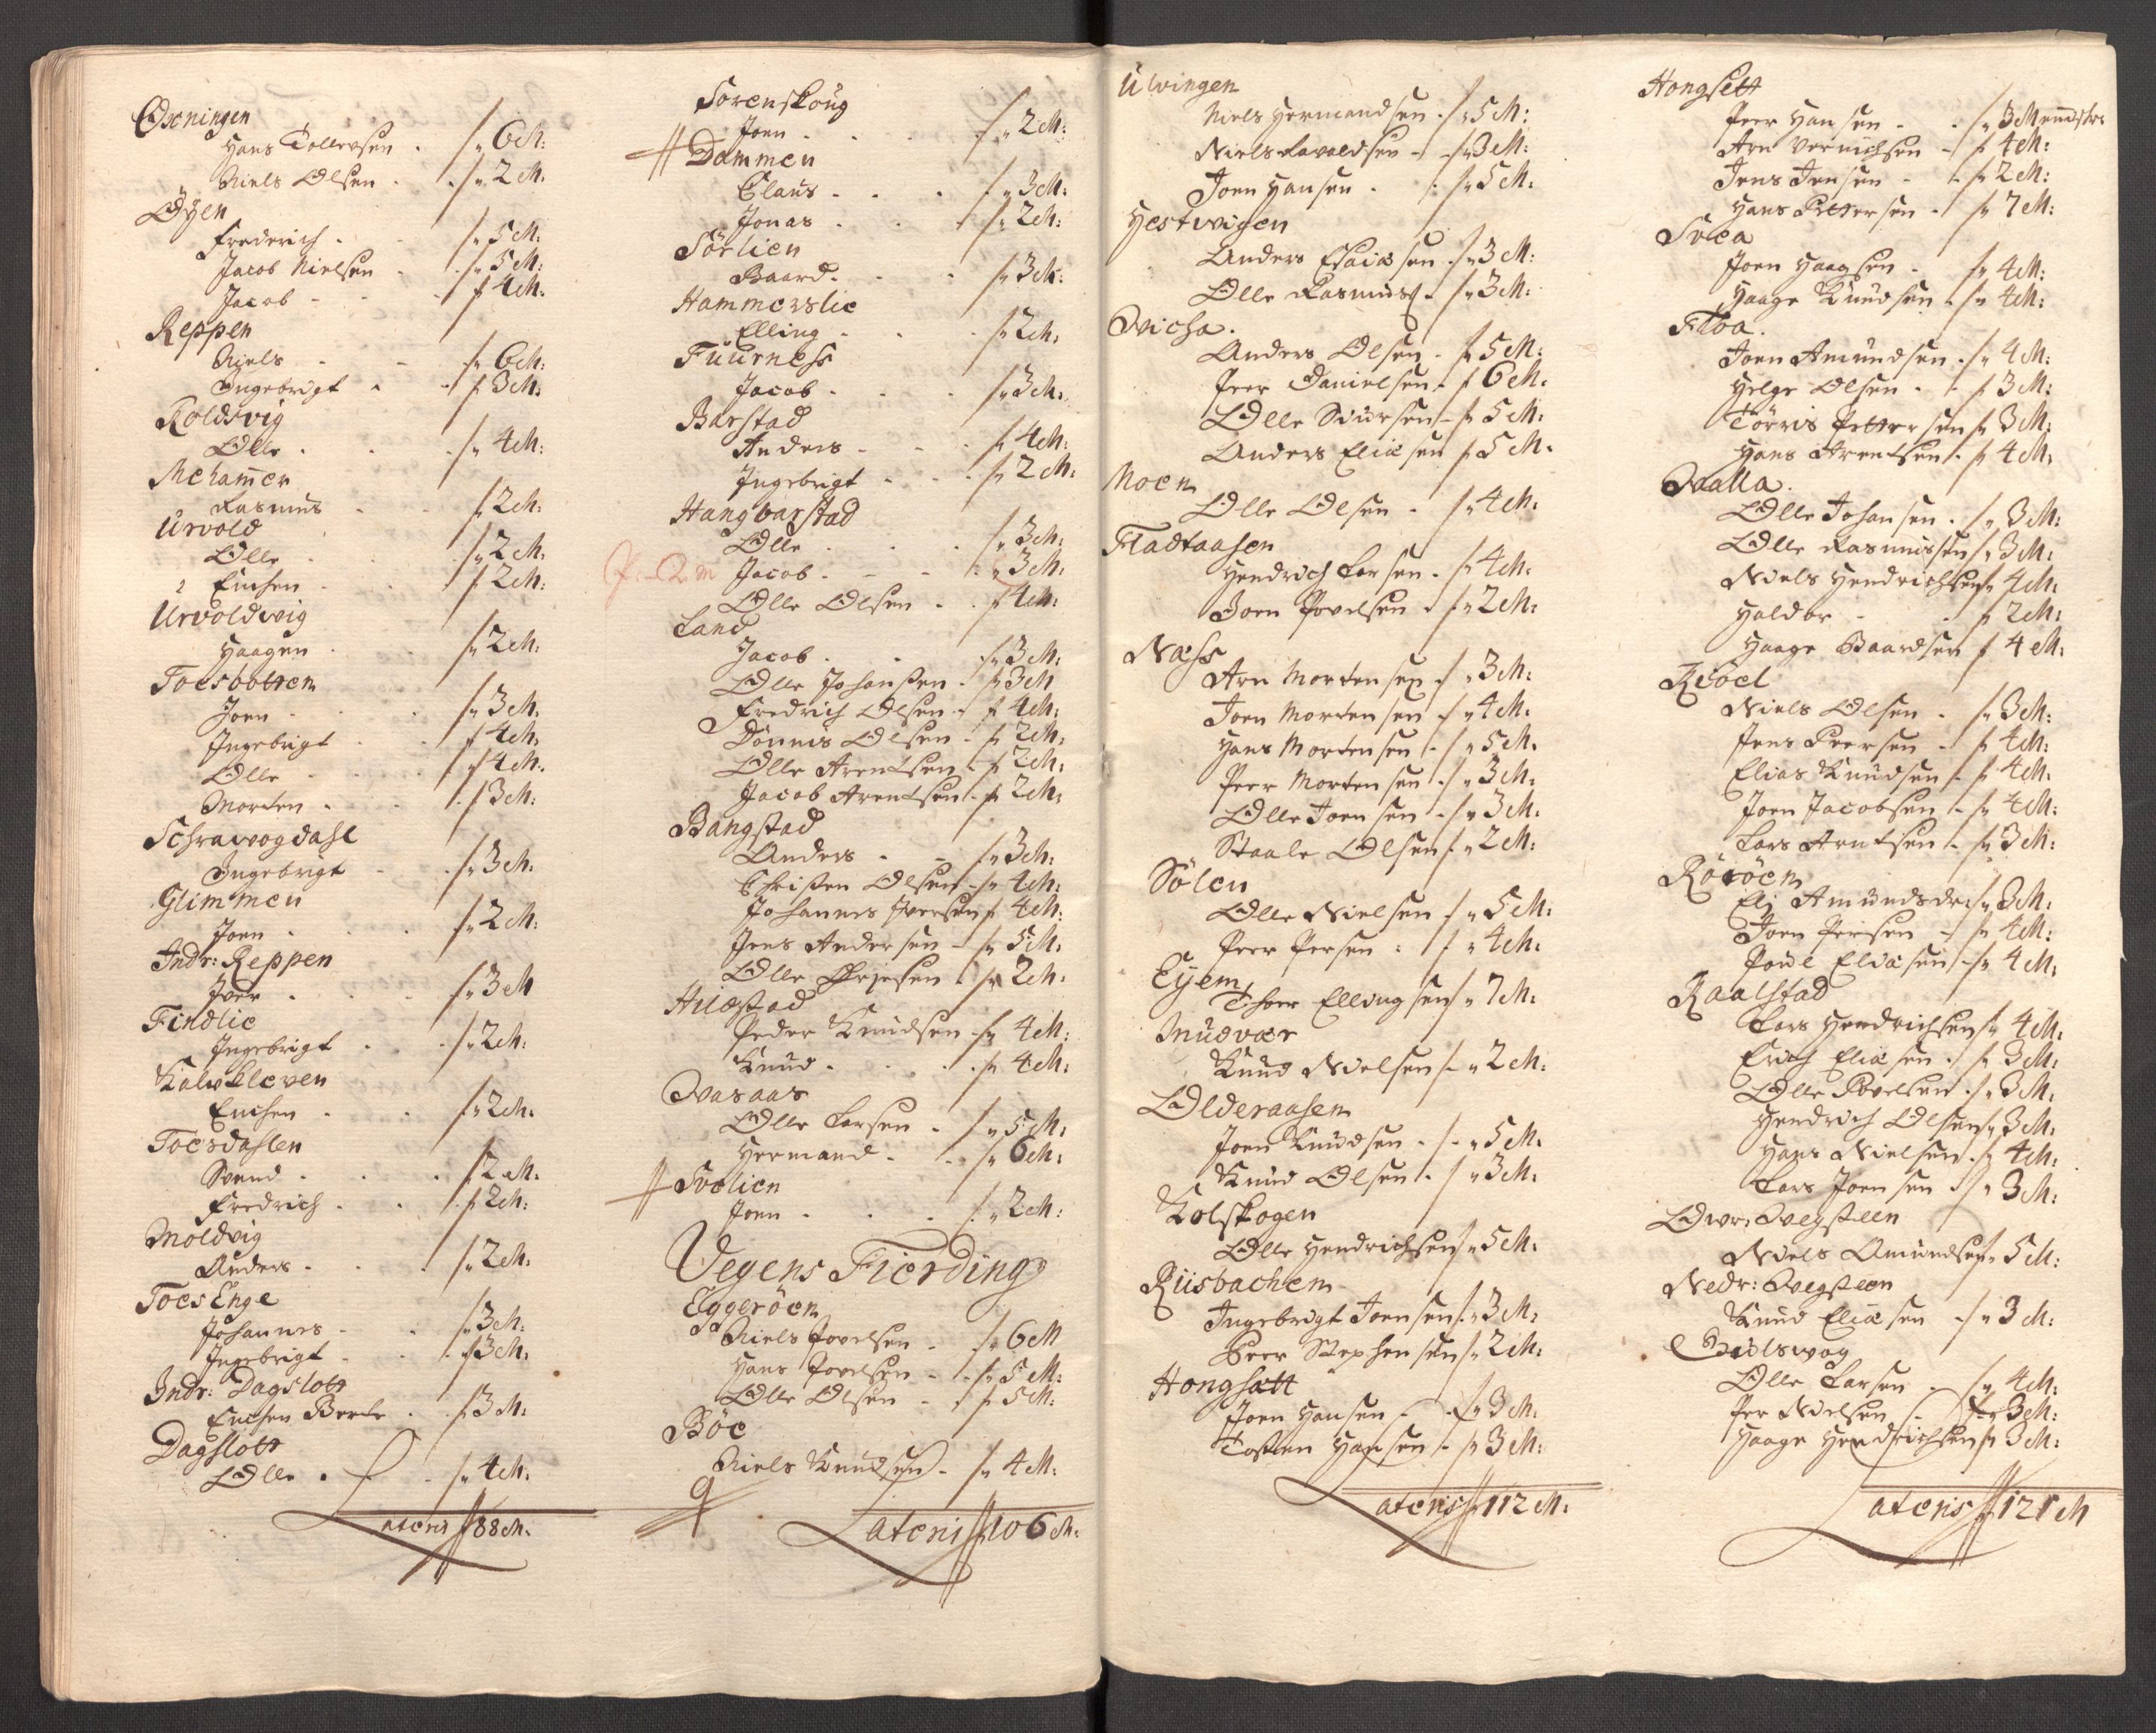 Oxningen
Hans Tollevsen . / „ 6 M:
Niels Olsen . . / „ 2 M.
Öÿen
Frederich . / „ 5 M:
Jacob Nielsen . / „ 5 M:
Jacob - - / „ 4 M:
Reppen
Niels - - / „ 6 M:
Ingebrigt . . / „ 3 M.
Roldsvig
Olle . . / „ 4 M:
Mehamer
Rasmus . / „ 2 M.
Urvold
Olle . / „ 2 M.
2 Enchen . / „ 2 M:
Urvoldvig
Haagen . / „ 2 M:
Toesbotten
Joen . . / „ 3 M.
Ingebrigt . / „ 4 M:
Olle . / „ 4 M.
Morten . / „ 3 M:
Schravogdahl
Ingebrigt - / „ 3 M:
Glimmen
Joen . . / „ 2 M:
Indr: Reppen
Iver . . / „ 3 M
Findlie
Ingebrigt . / „ 2 M.
Kalvkleven
Enchen . . / „ 2 M.
Toesdahlen
Svend . . . / „ 2 M.
Fredrich . . / „ 2 M:
Moldvig
Anders . . / „ 2 M.
Toes Enge
Johannes - . / „ 3 M:
Ingebrigt - . / „ 3 M.
Indr: Dagslott
Enchen Berte . / „ 3 M:
Dagslott
Olle . / „ 4 M:
Lateris / 88 M.
Sorenskoug
Joen . . / „ 2 M:
Dammen
Claus . . / „ 3 M:
Jonas . . / „ 2 M:
Sörlien
Baard . . / „ 3 M:
Hammerslie
Elling . . / „ 2 M.
Fuurness
Jacob . . / „ 3 M.
Barstad
Anders . . / „ 4 M:
Ingebrigt . . / „ 2 M.
Hangbarstad
Olle . . / „ 3 M.
Jacob . - - / „ 3 M.
Olle Olsen . . / „ 4 M:
Land
Jacob . . / „ 3 M:
Olle Johansen . / „ 3 M
Fredrich Olsen . / „ 4 M:
Dönnis Olsen . / „ 2 M.
Olle Arentsen . / „ 2 M.
Jacob Arentsen . / „ 2 M.
Bangstad
Anders . - / „ 3 M:
Christen Olsen . / „ 4 M:
Johannes Iversen / „ 4 M:
Jens Andersen . / „ 5 M.
Olle / „ 2 M.
Hildstad
Peder Knudsen / „ 4 M:
Knud . . / „ 4 M.
Qvasaas
Olle Larsen . / „ 5 M.
Hermand . . / „ 6 M.
Svolien
Joen . . / „ 2 M:
Vegens Fierding
Eggeröen
Niels Povelsen . / „ 6 M
Hans Povelsen . / „ 5 M:
Olle Olsen . / „ 5 M:
Böe
Niels Knudsen . / „ 4 M:
Lateris / 106 M:
Ulvingen
Niels Hermandsen . / „ 5 M:
Niels Lavaldsen - / „ 3 M:
Joen Hansen . / „ 5 M:
Hestvigen
Anders Esaiæsen / „ 3 M:
Olle Rasmus . / „ 3 M:
Qvicha .
Anders Olsen . / „ 5 M:
Peer Danielsen . / „ 6 M.
Olle Siursen - / „ 5 M:
Anders Eliæsen / „ 5 M.
Moen
Olle Olsen . / „ 4 M.
Fladtaasen
Hendrich Larsen . / „ 4 M.
Joen Povelsen . / „ 2 M:
Næss
Arn Mortensen . / „ 3 M:
Joen Mortensen . / „ 4 M:
Hans Mortensen . / „ 5 M.
Peer Mortensen . / „ 3 M:
Olle Joensen . / „ 3 M:
Staale Olsen / „ 2 M:
Sölen
Olle Nielsen . / „ 5 M:
Peer Persen . / „ 4 M:
Eÿem
Thor Ellingsen / „ 7 M:
Mudvær
Knud Nielsen / „ 2 M.
Olderaasen
Joen Knudsen . / „ 5 M.
Knud Olsen . / „ 3 M:
Kolskogen
Olle Hendrichsen / „ 5 M:
Riisbachen
Ingebrigt Joensen / „ 3 M:
Peer Stephensen / „ 2 M:
Hongsett
Joen Hansen . / „ 3 M.
Tosten Hansen . / „ 3 M:
Lateris / 112 M:
Hongsett
Peer Hansen . . / „ 3 M
Arn Vernichsen . / „ 4 M:
Jens Jensen . / „ 2 M:
Hans Pettersen . / „ 7 M:
Svea
Joen Haagsen . / „ 4 M:
Haage Knudsen . / „ 4 M:
Floa .
Joen Amundsen . / „ 4 M:
Helge Olsen . / „ 3 M:
Törris Pettersen / „ 3 M:
Hans Arentsen . / „ 4 M.
Qvalla .
Olle Johansen . / „ 3 M:
Olle Rasmussen / „ 3 M:
Niels Hendrichsen / „ 4 M:
Haldor . . / „ 2 M:
Haage Baardsen / „ 4 M.
Rödel
Niels Olsen . / „ 3 M:
Jens Peersen . / „ 4 M:
Elias Knudsen . / „ 4 M.
Joen Jacobsen . / „ 4 M:
Lars Arntsen . / „ 3 M:
Röröen
Eli Amundsdr: / „ 3 M.
Joen Persen . / „ 4 M:
Povel Eliæsen . / „ 4 M.
Raalstad
Lars Hendrichsen / „ 4 M.
Erich Eliæsen . / „ 3 M.
Olle Povelsen . / „ 3 M.
Hendrich Olsen / „ 3 M:
Hans Nielsen . / „ 4 M:
Lars Joensen . / „ 3 M:
Owr: Qvegsteen
Niels Amundsen / „ 5 M:
Nedr: Qvegsteen
Knud Eliæsen . / „ 3 M:
Olle Larsen . / „ 4 M:
Per Nielsen / „ 3 M:
Haage Hendrichsen / „ 3 M:
Lateris / 121 M